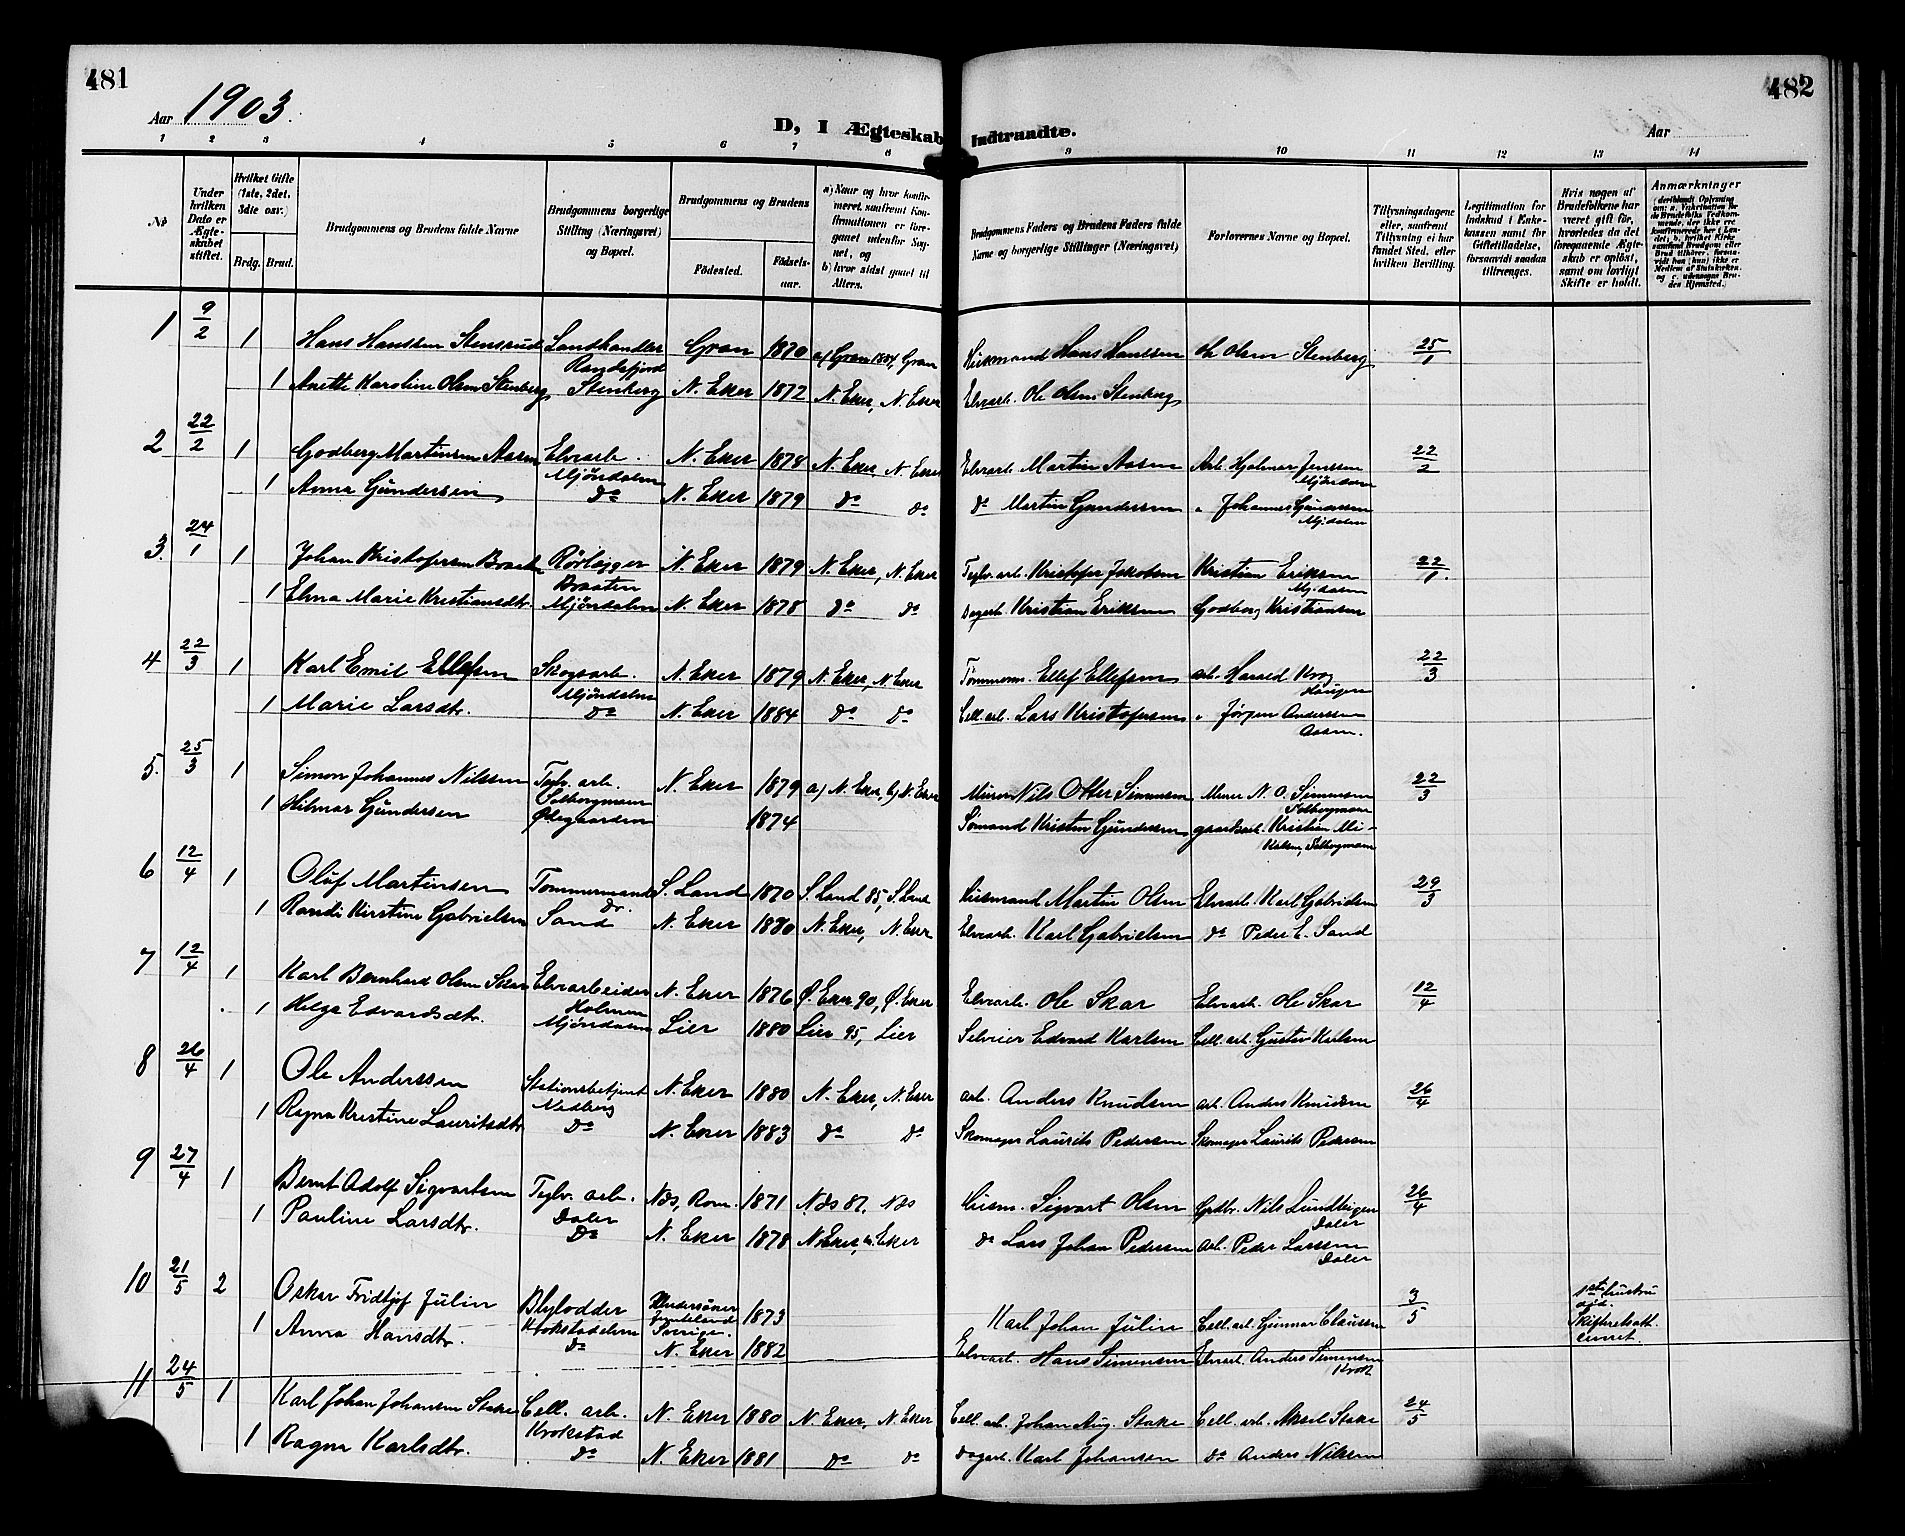 481
482
Aar 1903.
D, I Ægteskab Indtraadte.
Aar
1 2 3 4 5 6 7 8 9 10 11 12 13 14
No
Under hvilken Dato er Ægteskabet stiftet.
Hvilket Gifte (1ste, 2det, 3die osv.)
Brdg. Brud.
Brudgommens og Brudens fulde Navne
Brudgommens borgerlige Stilling (Næringsvei) og Bopæl.
Brudgommens og Brudens
Fødested.
Fødselsaar.
Brudgommens Faders og Brudens Faders fulde Navne og borgerlige Stillinger (Næringsvei)
Forlovernes Navne og Bopæl.
Tillysningsdagene eller, saafremt Tillysning ei har fundet Sted, efter hvilken Bevilling.
Legitimation for Indskud i Enkekassen samt for Giftetilladelse, forsaavidt saadan tiltrænges.
Hvis nogen af Brudefolkene har været gift før, hvorledes da det foregaaende Ægteskab er opløst, samt om lovligt Skifte er holdt.
Anmærkninger
1 9/2 1 Hans Hanssen Stensrud Landhandler Gran 1870 a) Gran 1884, Gran Husmand Hans Hanssen Ole Olsen Stenberg 25/1
Randsfjord
1 Anette Karoline Olsen Stenberg Stenberg N. Eker 1872 N. Eker, N. Eker Elvearb. Ole Olsen Stenberg
2 22/2 1 Godberg Martinsen Aasen Elvearb. N. Eker 1878 N. Eker, N. Eker Elvearb. Martin Aasen Arb. Hjalmar Jenssen 22/2
Mjøndalen Mjøndalen
1 Anna Gundersen Do N. Eker 1879 Do Do Do Martin Gundersen " Johannes Gundersen
Mjdalen
3. 24/1 1 Johan Kristofersen Braat Rørlægger N. Eker 1879 N. Eker, N. Eker Teglv. arb. Kristofer Jakobsen Kristian Eriksen 22/1.
Braaten Mjdalen
1 Elma Marie Kristiansdtr. Mjøndalen N. Eker 1878 Do Do Dagarb. Kristian Eriksen Godberg Kristiansen
4 22/3 1 Karl Emil Ellefsen Skogsarb. N. Eker 1879 N. Eker, N. Eker Tømmerm. Ellef Ellefsen Arb. Harald Krog 22/3
Mjøndalen Haugen
1 Marie Larsdtr. Do N. Eker 1884 Do Do Cell. arb. Lars Kristofersen " Jørgen Anderssen
Aasen.
5. 25/3 1 Simon Johannes Nilssen Teglv. arb. N. Eker 1879 a) N. Eker, b) N. Eker Murer Nils Otter Simensen Murer N. O. Simensen 22/3
Solbergmoen Solbergmoen
1 Hilmar Gundersen Ødegaarden 1874 Sømand Kristen Gundersen gaardsarb. Kristian Mi-
kalsen, Solbergmoen
6 12/4 1 Oluf Martinsen Tømmermand S. Land 1870 S. Land 85, S. Land Husmand Martin Olsen Elvearb. Karl Gabrielsen 29/3
1 Randi Kirstine Gabrielsen Sand N. Eker 1880 N. Eker, N. Eker Elvearb. Karl Gabrielsen Do Peder E. Sand
7 12/4 1 Karl Bernhard Olsen Skar Elvearbeider N. Eker 1876 Ø. Eker 90, Ø. Eker Elvearb. Ole Skar Elvearb. Ole Skar 12/4
Holmen
1 Helga Edvardsdtr. Mjøndalen Lier 1880 Lier 95, Lier Selveier Edvard Karlsen Cell. arb. Gustav Karlsen
8 26/4 1 Ole Anderssen Stationsbetjent N. Eker 1880 N. Eker, N. Eker arb. Anders Knudsen arb. Anders Knudsen 26/4
Nedberg
1 Ragna Kristine Lauritsdtr Do N. Eker 1883 Do Do Skomager Laurits Pedersen Skomager Laurits Pedersen
9 27/4 1 Bernt Adolf Sigvartsen Teglv. arb. Næs, Rom. 1871 Næs 87, Næs Husm. Sigvart Olsen Grdbr. Nils Lundteigen 26/4
Daler Daler
1 Pauline Larsdtr. Do N. Eker 1878 N. Eker, N. Eker Do Lars Johan Pedersen Arb. Peder Larssen
Daler
10 21/5 2 Oskar Fridtjof Julin Blylodder Jemteland Sverige. 1873 Karl Johan Julin Cell. arb. Gunnar Claussen 3/5 1ste hustru
død.
Skifteretsatt.
Krokstadelven
1 Anna Hansdtr. Do N. Eker 1882 Elvearb. Hans Simensen Elvearb. Anders Simensen
11 24/5 1 Karl Johan Johansen Stake Cell. arb. N. Eker 1880 N. Eker, N. Eker Cell. arb. Johan Aug. Stake Cell. arb. Aksel Stake 24/5
Krokstad
1 Ragna Karlsdtr. Do N. Eker 1881 Do Do Dagarb. Karl Johansen Do Anders Nilssen